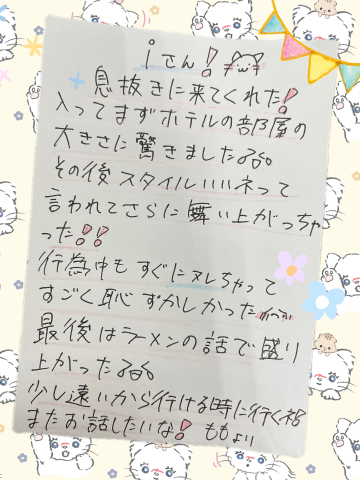 iさん!
息抜きに来てくれた!
入ってまずホテルの部屋の
大きさに驚きました
その後スタイルいいネって
言われてさらに舞い上がっちゃ
った!!
行為中もすぐにヌレちゃって
すごく恥ずかしかった
最後はラーメンの話で盛り
上がった
少し遠いから行ける時に行くね
またお話したいな! ももより